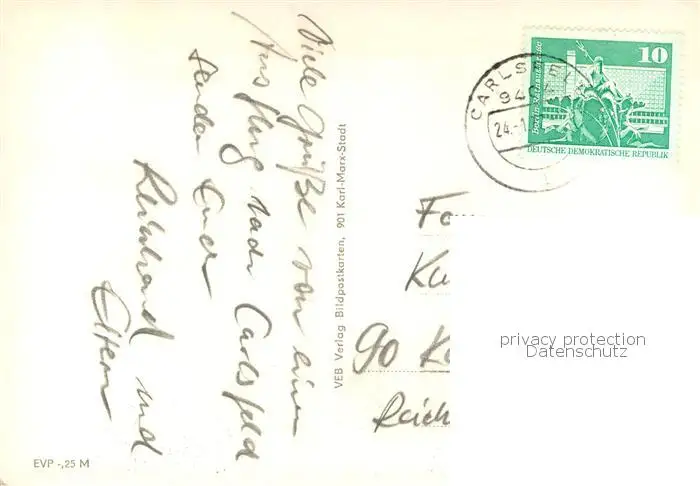 Viele Grüße von einem
Ausflug nach Carlsfeld
senden Euer
Reinhard und
Eltern
VEB Verlag Bildpostkarten, 901 Karl-Marx-Stadt
EVP -,25 M
CARLSFELD
24.
10
Berlin-Rathausstraße
DEUTSCHE DEMOKRATISCHE REPUBLIK
90 K
Reich
privacy protection
Datenschutz